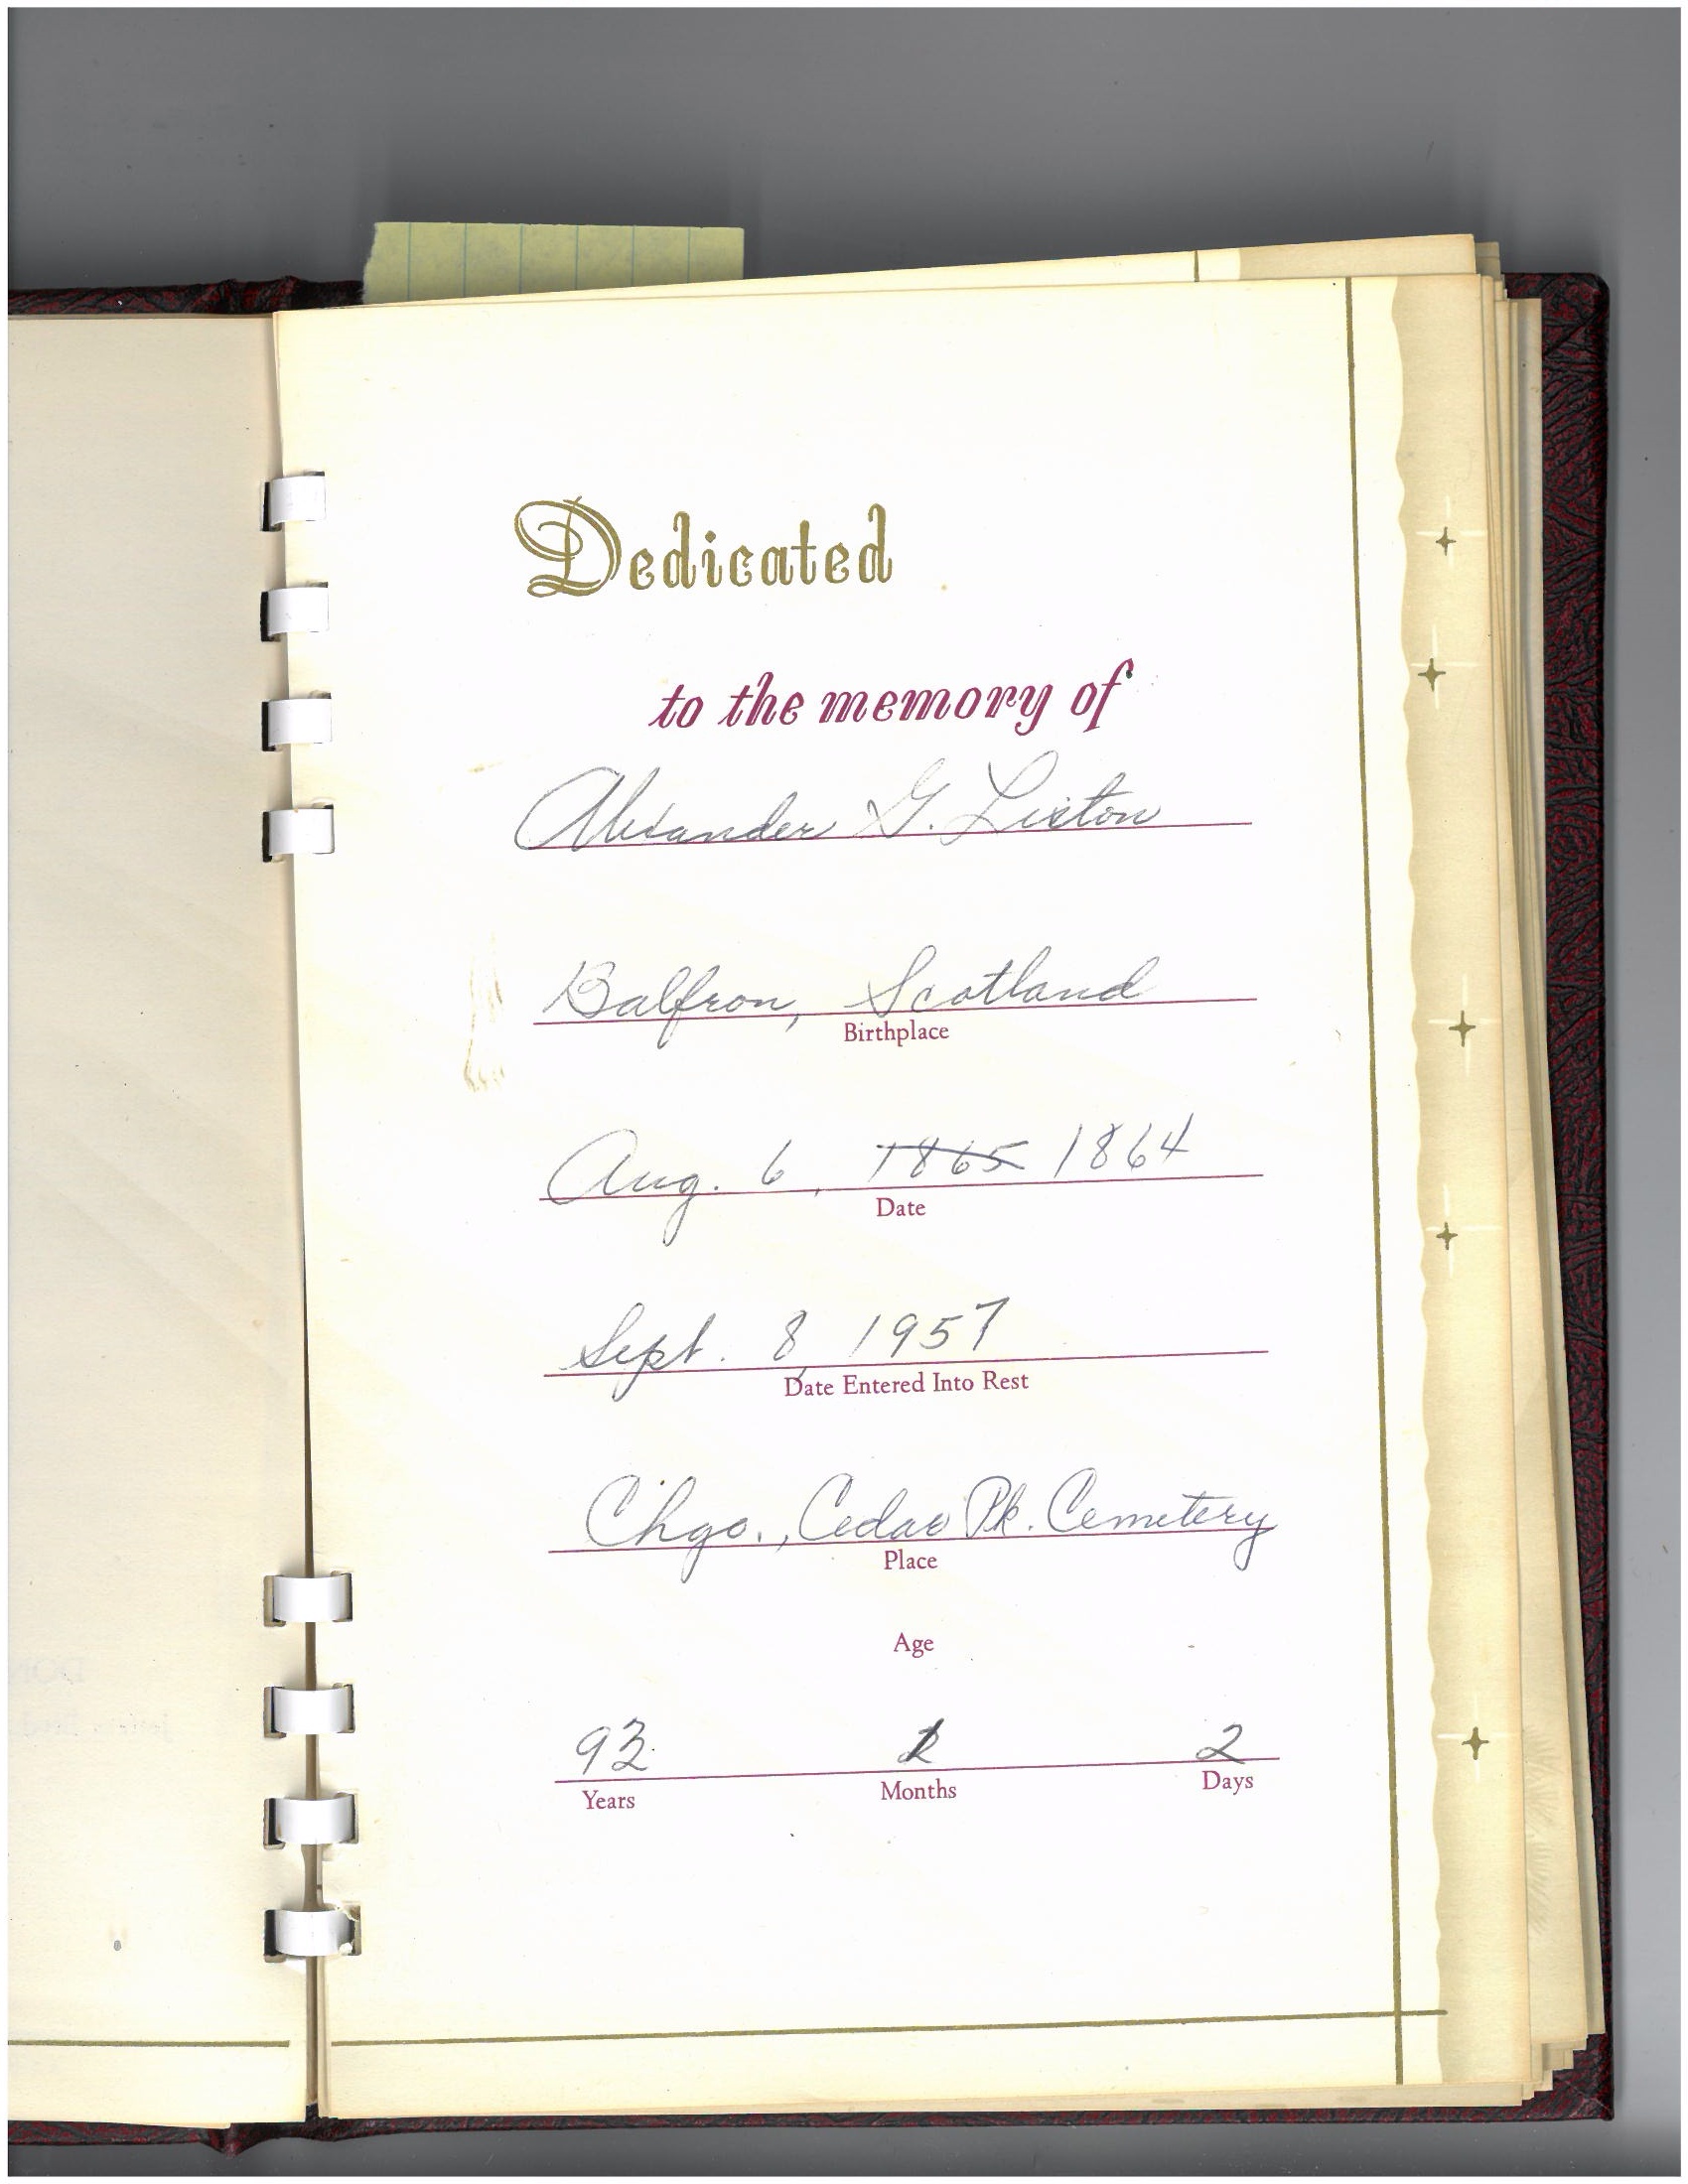 Dedicated
to the memory of
Alexander G. Liston
Balfron, Scotland
Birthplace
Aug. 6, 1865 1864
Date
Sept. 8, 1957
Date Entered Into Rest
Chgo., Cedar Pk. Cemetery
Place
Age
93 1 2
Years Months Days